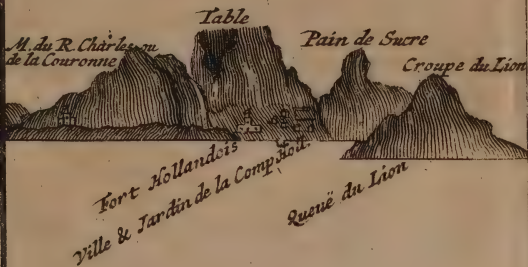 Table
M. du R. Charles ou
de la Couronne
Pain de Sucre
Croupe du Lion
Fort Hollandois
Ville & Jardin de la Comp. Holl.
Queuë du Lion